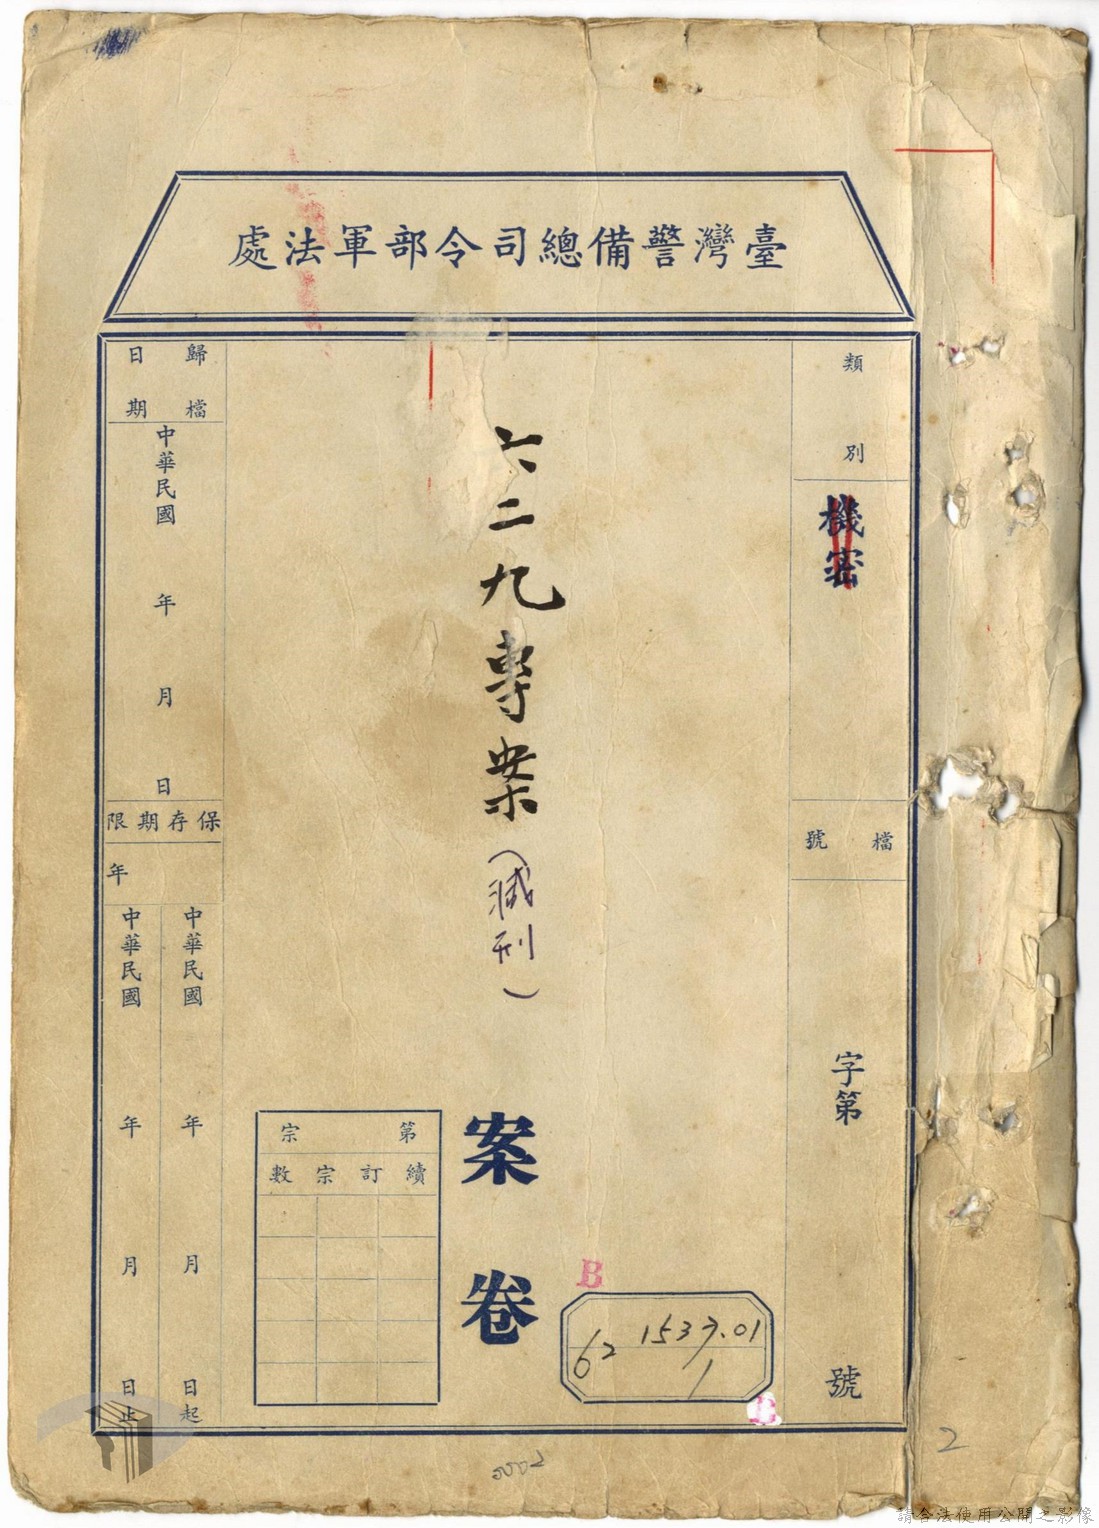 臺灣警備總司令部軍法處
類別
機密
檔號
字第
號
六二九專案(減刑)
案卷
第 宗
續訂宗數
B
62 1537.01
1
歸檔日期
中華民國 年 月 日
保存期限
年
中華民國 年 月 日起
中華民國 年 月 日止
2
0002
請合法使用公開之影像